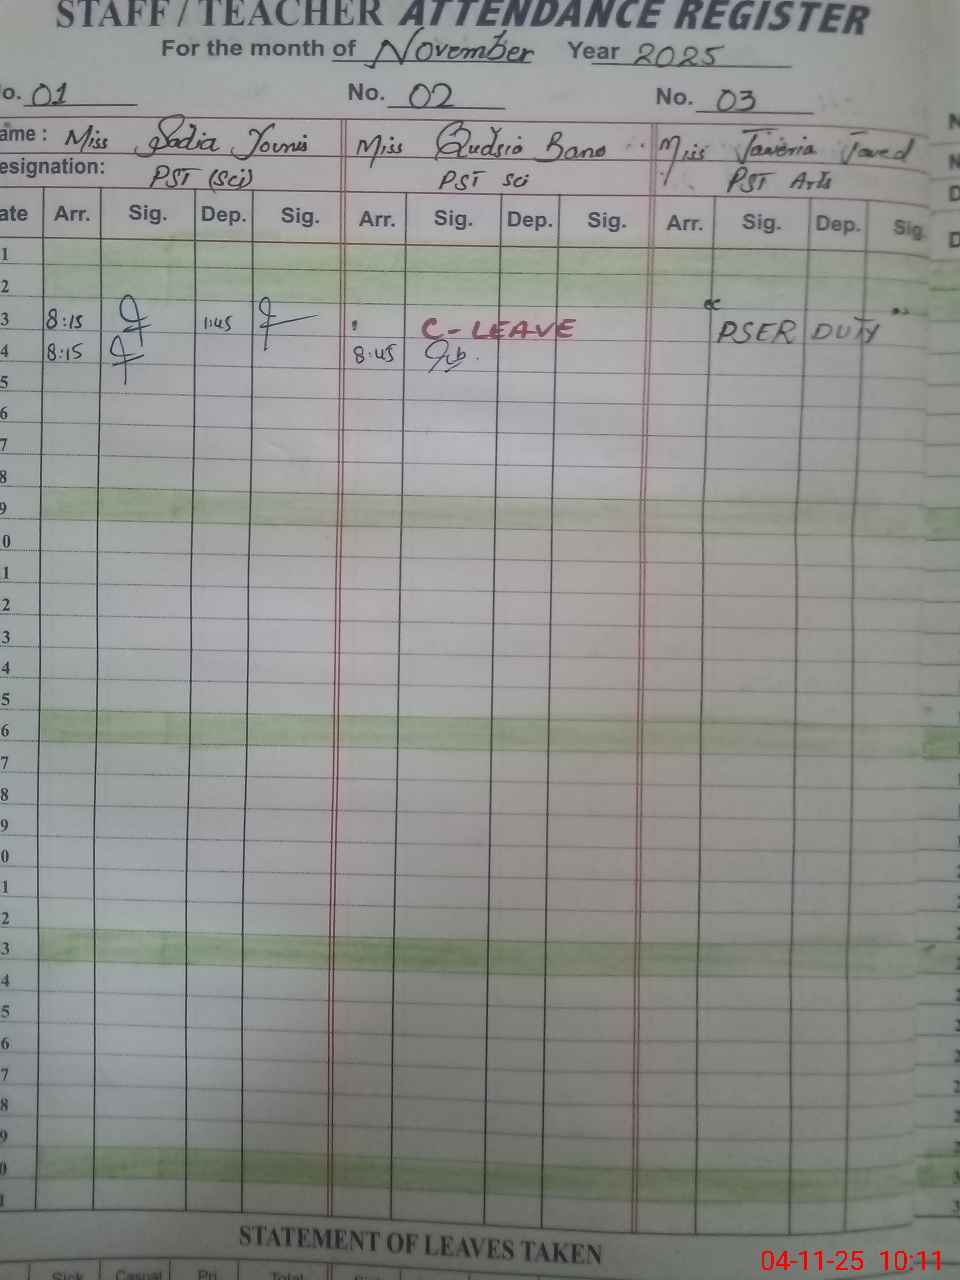 STAFF / TEACHER ATTENDANCE REGISTER
For the month of November Year 2025
No. 01 No. 02 No. 03
ame : Miss Sadia Younis Miss Qudsia Bano Miss Javeria Javed
esignation: PST (Sci) PST Sci PST Arts
ate Arr. Sig. Dep. Sig. Arr. Sig. Dep. Sig. Arr. Sig. Dep. Sig.
1
2
3 8:15 1:45 C-LEAVE PSER DUTY
4 8:15 8:45
5
6
7
8
9
0
1
2
3
4
5
6
7
8
9
0
1
2
3
4
5
6
7
8
9
0
1
STATEMENT OF LEAVES TAKEN
Sick Casual Pri. Total
04-11-25 10:11